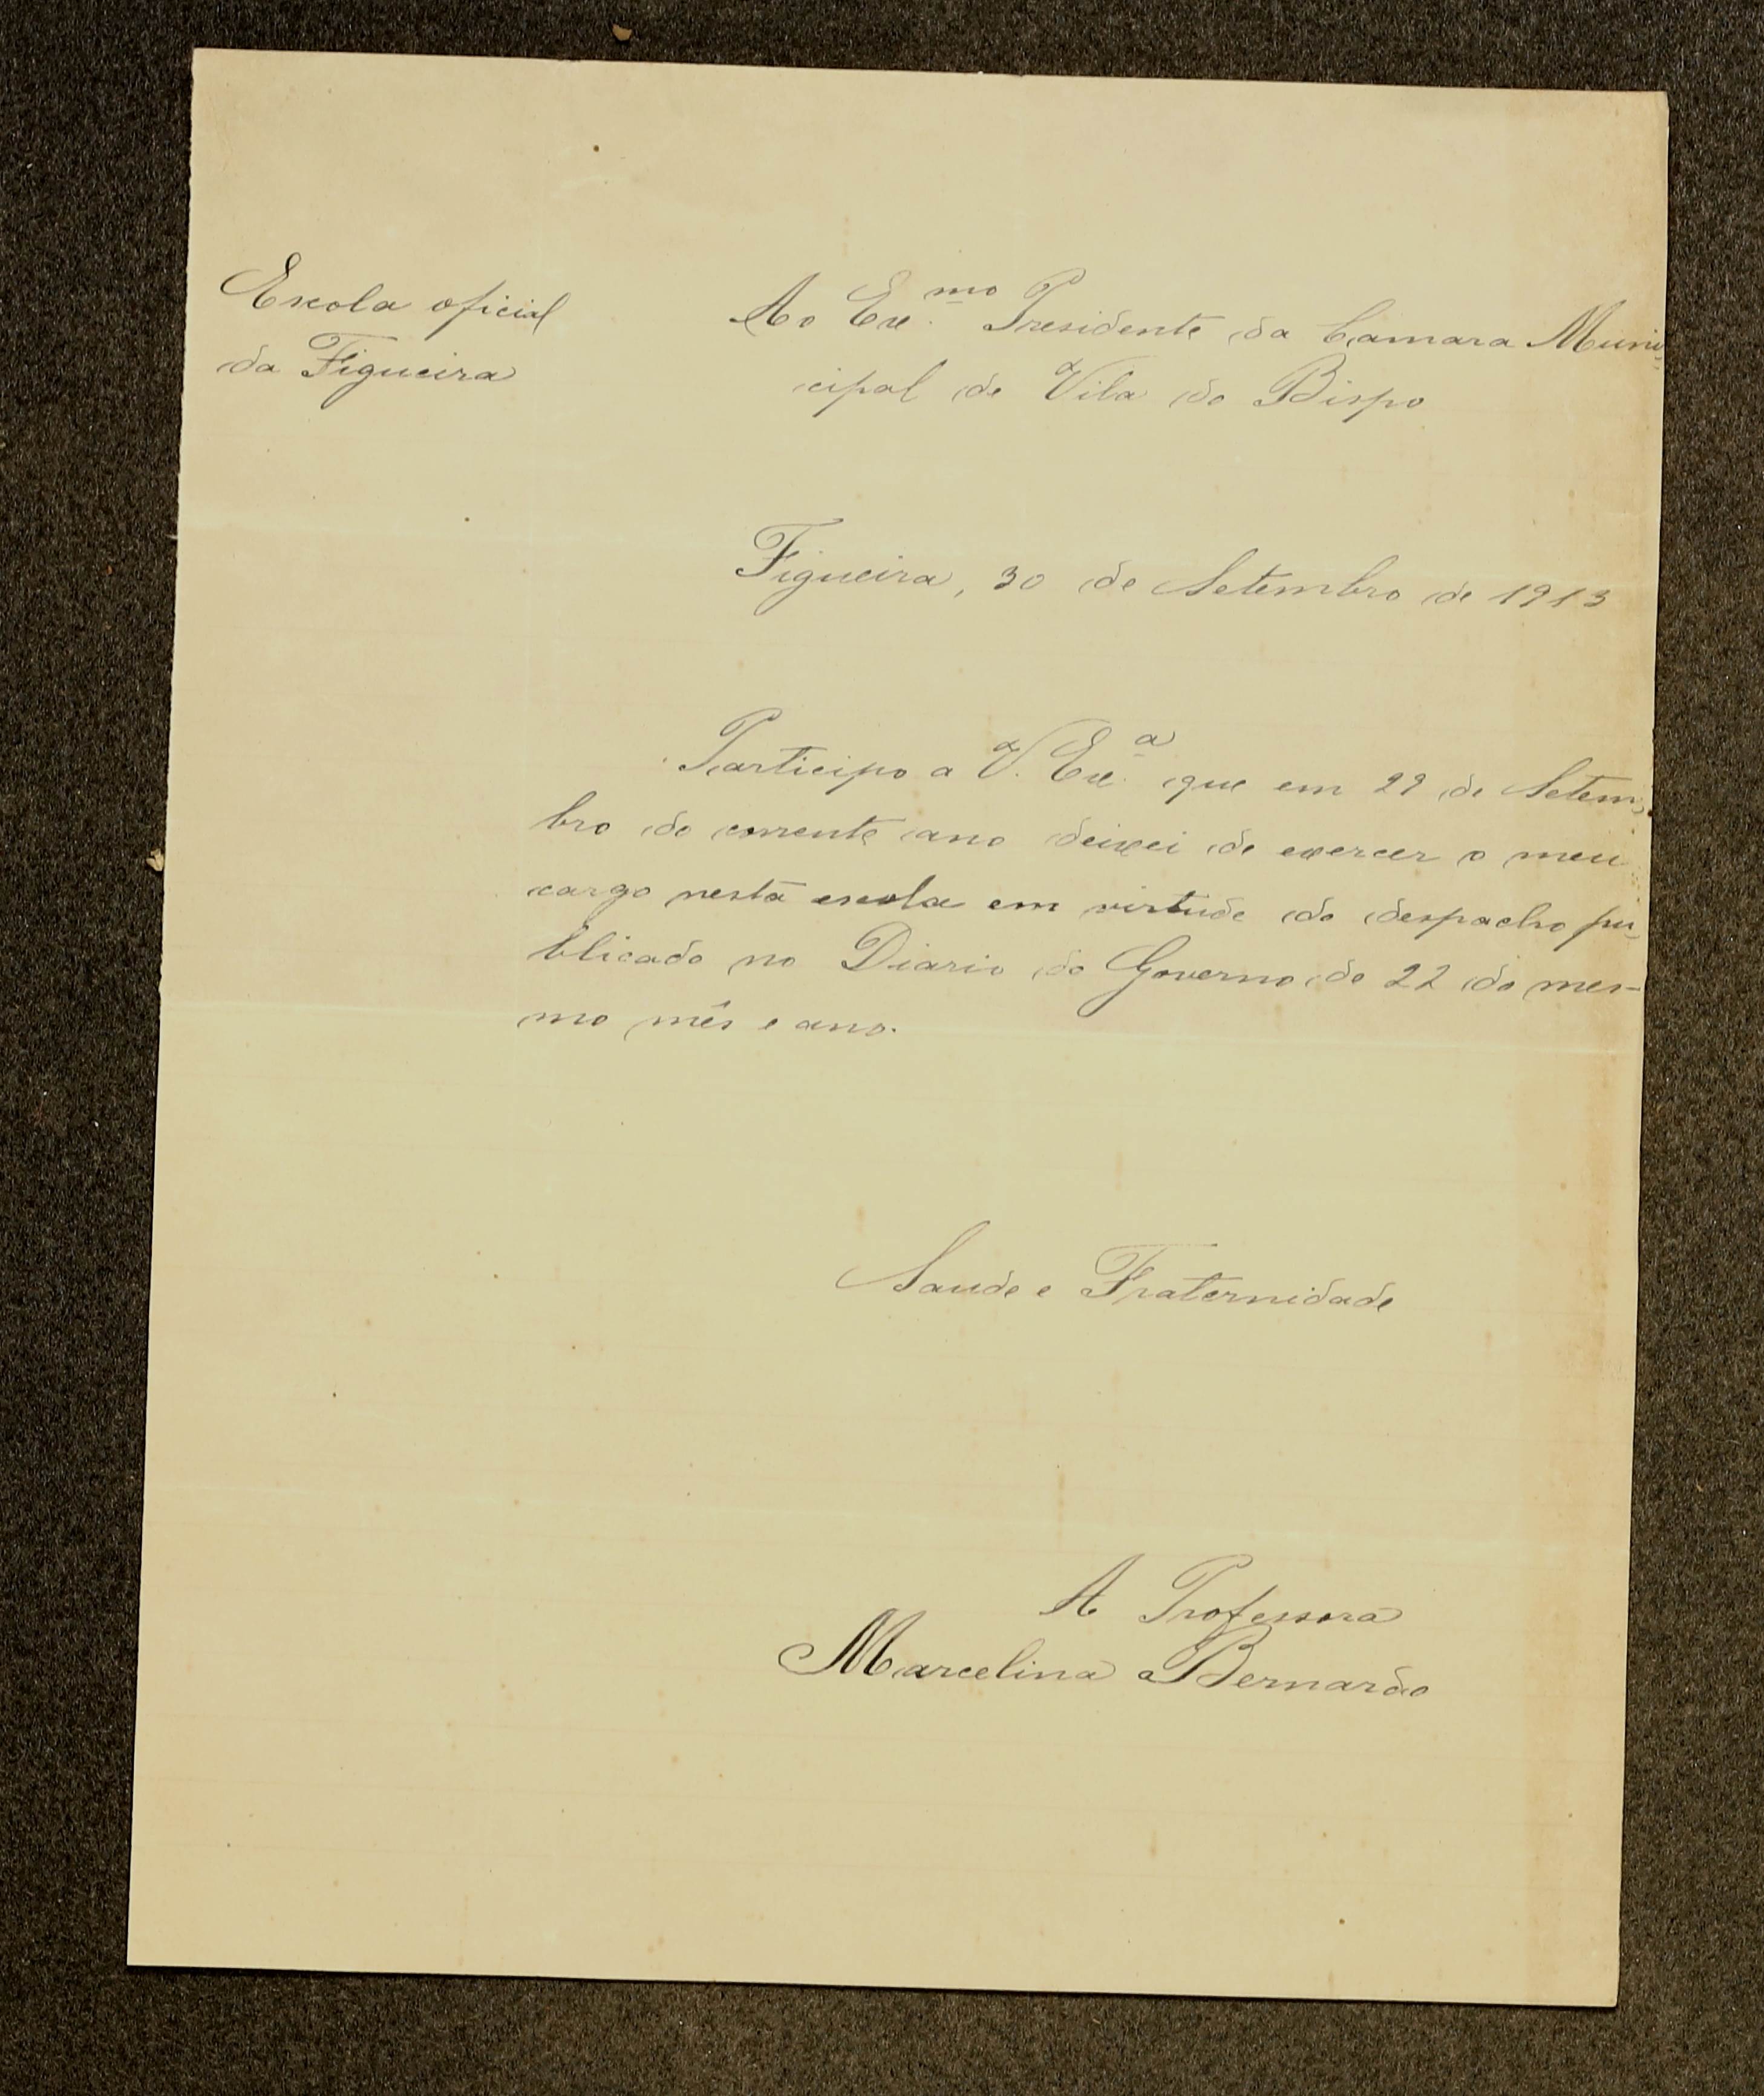 Escola oficial
da Figueira
Ao Ex.mo Presidente da Camara Muni-
cipal de Vila do Bispo
Figueira, 30 de Setembro de 1913
Participo a V. Ex.a que em 29 de Setem-
bro do corrente ano deixei de exercer o meu
cargo nesta escola em virtude do despacho pu-
blicado no Diario do Governo do 22 do mes-
mo mês e ano.
Saude e Fraternidade
A Professora
Marcelina Bernardo